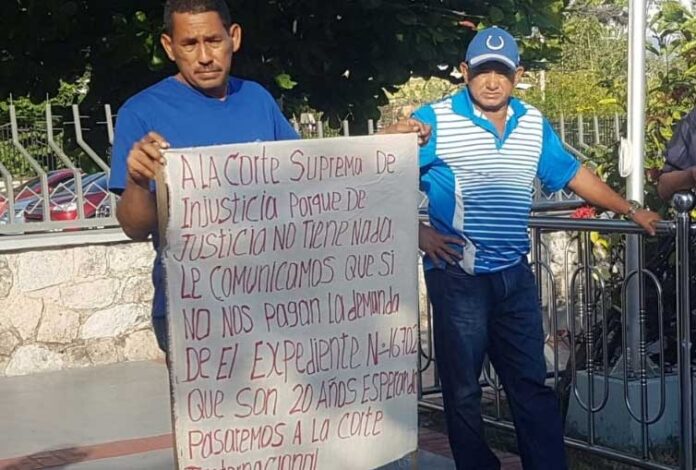 A LA CORTE SUPREMA DE
INJUSTICIA PORQUE DE
JUSTICIA NO TIENE NADA
LE COMUNICAMOS QUE SI
NO NOS PAGAN LA DEMANDA
DE EL EXPEDIENTE Nº-16702
QUE SON 20 AÑOS ESPERANDO
PASAREMOS A LA CORTE
INTERNACIONAL